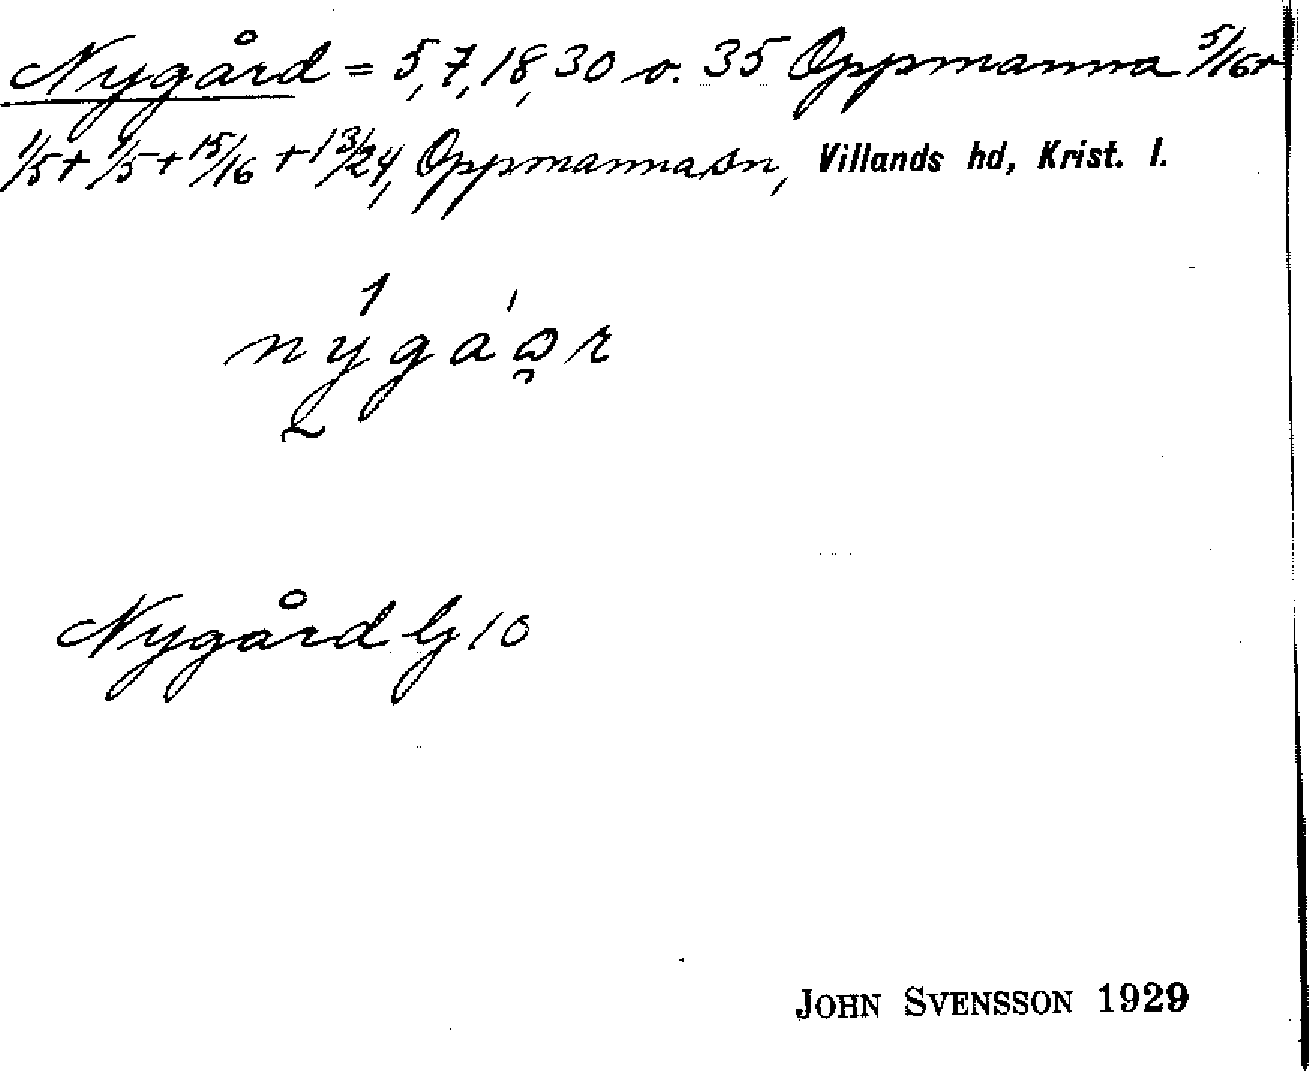 Nygård = 5, 7, 18, 30 o. 35 Oppmanna 5/16 +
1/5 + 1/5 + 15/16 + 13/24, Oppmanna sn, Villands hd, Krist. l.
Nygård G 10
JOHN SVENSSON 1929